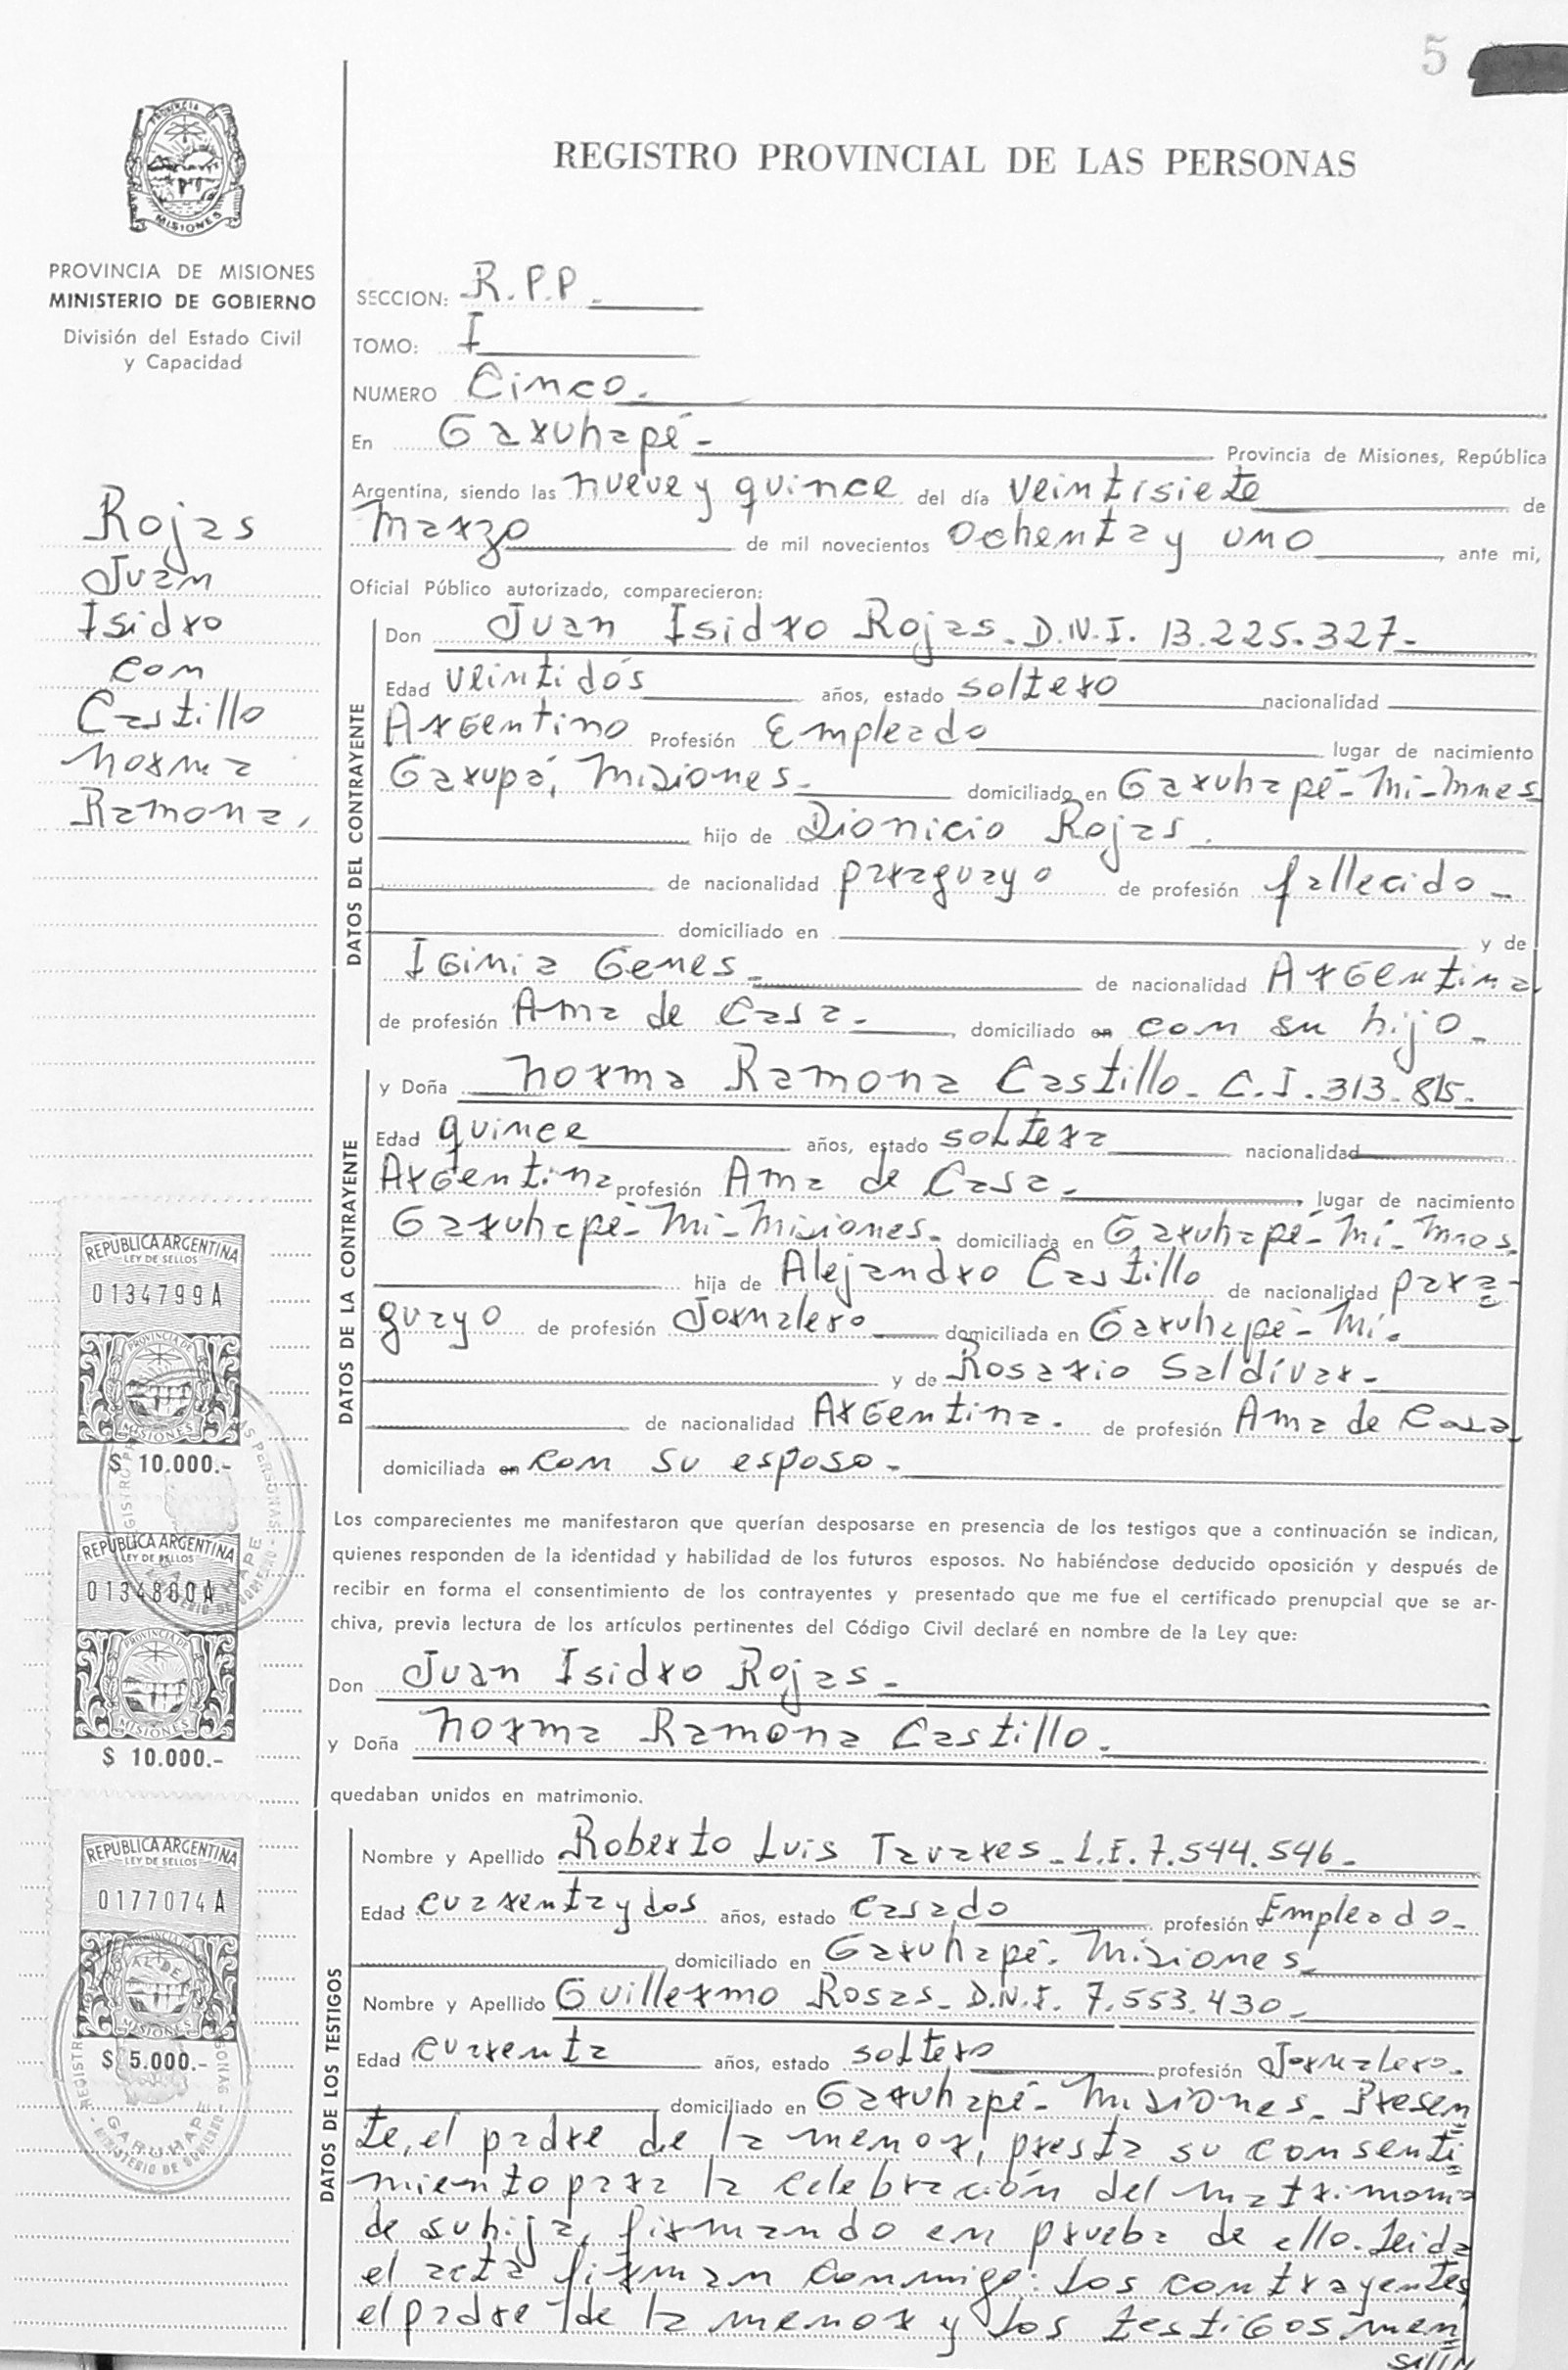 5
PROVINCIA DE
MISIONES
REGISTRO PROVINCIAL DE LAS PERSONAS
PROVINCIA DE MISIONES
MINISTERIO DE GOBIERNO
División del Estado Civil
y Capacidad
SECCION: R.P.P.
TOMO: I
NUMERO Cinco.
En Garuhapé - Provincia de Misiones, República
Argentina, siendo las nueve y quince del día veintisiete de
marzo de mil novecientos ochenta y uno, ante mi,
Oficial Público autorizado, comparecieron:
Rojas
Juan
Isidro
con
Castillo
Norma
Ramona.
DATOS DEL CONTRAYENTE
Don Juan Isidro Rojas - D.N.I. 13.225.327-
Edad veintidós años, estado soltero nacionalidad
Argentino Profesión Empleado lugar de nacimiento
Garupá, Misiones. domiciliado en Garuhapé - Mí - Mnes
hijo de Dionicio Rojas.
de nacionalidad paraguayo de profesión fallecido -
domiciliado en y de
Iginia Genes. de nacionalidad Argentina.
de profesión Ama de Casa. domiciliado en con su hijo -
DATOS DE LA CONTRAYENTE
y Doña Norma Ramona Castillo - C.I. 313.815-
Edad quince años, estado soltera nacionalidad
Argentina profesión Ama de Casa. lugar de nacimiento
Garuhapé - Mí - Misiones. domiciliada en Garuhapé - Mí - Mnes.
hija de Alejandro Castillo de nacionalidad para-
guayo de profesión Jornalero domiciliada en Garuhapé - Mí.
y de Rosario Saldívar -
de nacionalidad Argentina. de profesión Ama de Casa
domiciliada en con su esposo -
Los comparecientes me manifestaron que querían desposarse en presencia de los testigos que a continuación se indican,
quienes responden de la identidad y habilidad de los futuros esposos. No habiéndose deducido oposición y después de
recibir en forma el consentimiento de los contrayentes y presentado que me fue el certificado prenupcial que se ar-
chiva, previa lectura de los artículos pertinentes del Código Civil declaré en nombre de la Ley que:
Don Juan Isidro Rojas -
y Doña Norma Ramona Castillo.
quedaban unidos en matrimonio.
DATOS DE LOS TESTIGOS
Nombre y Apellido Roberto Luis Tavares - L.E. 7.544.546-
Edad cuarenta y dos años, estado casado profesión Empleado -
domiciliado en Garuhapé - Misiones
Nombre y Apellido Guillermo Rosas - D.N.I. 7.553.430-
Edad cuarenta años, estado soltero profesión Jornalero.
domiciliado en Garuhapé - Misiones - Presen
te, el padre de la menor, presta su consenti
miento para la celebración del matrimonio
de su hija, firmando en prueba de ello. Leida
el acta firman conmigo: los contrayentes,
el padre de la menor y los testigos men
REPUBLICA ARGENTINA
LEY DE SELLOS
0134799A
PROVINCIA DE
MISIONES
$ 10.000.-
REPUBLICA ARGENTINA
LEY DE SELLOS
0134800A
PROVINCIA DE
MISIONES
$ 10.000.-
REPUBLICA ARGENTINA
LEY DE SELLOS
0177074A
MISIONES
$ 5.000.-
GARUHAPE